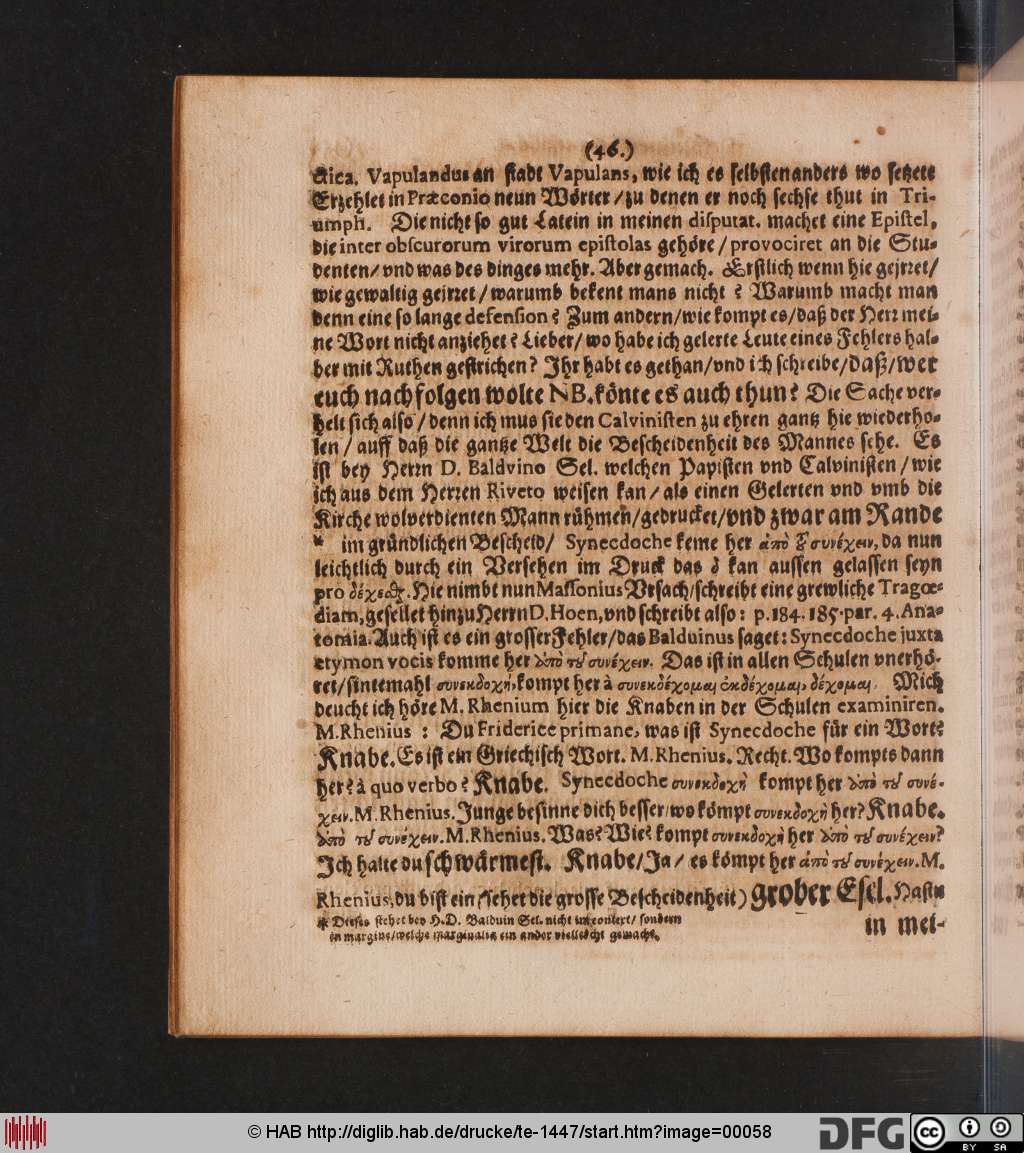 (46.)
ctica. Vapulandus an stadt Vapulans, wie ich es selbsten anders wo setzete
Erzehlet in Præconio neun Wörter / zu denen er noch sechse thut in Tri-
umph. Die nicht so gut Latein in meinen disputat. machet eine Epistel,
die inter obscurorum virorum epistolas gehöre / provociret an die Stu-
denten / vnd was des dinges mehr. Aber gemach. Erstlich wenn hie geirret /
wie gewaltig geirret / warumb bekent mans nicht ? Warumb macht man
denn eine so lange defension ? Zum andern / wie kompt es / daß der Herr mei-
ne Wort nicht anziehet ? Lieber / wo habe ich gelerte Leute eines Fehlers hal-
ber mit Ruthen gestrichen ? Ihr habt es gethan / vnd ich schreibe / daß / wer
euch nachfolgen wolte NB. könte es auch thun ? Die Sache ver-
helt sich also / denn ich mus sie den Calvinisten zu ehren gantz hie wiederho-
len / auff daß die gantze Welt die Bescheidenheit des Mannes sehe. Es
ist bey Herrn D. Baldvino Sel. welchen Papisten vnd Calvinisten / wie
ich aus dem Herren Riveto weisen kan / als einen Gelerten vnd vmb die
Kirche wolverdienten Mann rühmen / gedrucket / vnd zwar am Rande
* im gründlichen Bescheid / Synecdoche keme her ἀπὸ τ͂ συνέχειν, da nun
leichtlich durch ein Versehen im Druck das δ kan aussen gelassen seyn
pro δέχεσθ. Hie nimbt nun Massonius Vrsach / schreibt eine grewliche Tragœ-
diam, gesellet hinzu Herrn D. Hoen, vnd schreibt also : p. 184. 185. par. 4. Ana-
tomia. Auch ist es ein grosser Fehler / das Balduinus saget : Synecdoche juxta
etymon vocis komme her ἀπὸ τοῦ συνέχειν. Das ist in allen Schulen vnerhö-
ret / sintemahl συνεκδοχὴ, kompt her à συνεκδέχομαι ἐκδέχομαι, δέχομαι. Mich
deucht ich höre M. Rhenium hier die Knaben in der Schulen examiniren.
M. Rhenius : Du Friderice primane, was ist Synecdoche für ein Wort?
Knabe. Es ist ein Griechisch Wort. M. Rhenius. Recht. Wo kompts dann
her ? à quo verbo ? Knabe. Synecdoche συνεκδοχὴ kompt her ἀπὸ τοῦ συνέ-
χειν. M. Rhenius. Junge besinne dich besser / wo kömpt συνεκδοχὴ her? Knabe.
ἀπὸ τοῦ συνέχειν. M. Rhenius. Was? Wie? kompt συνεκδοχὴ her ἀπὸ τοῦ συνέχειν?
Ich halte du schwärmest. Knabe / Ja / es kömpt her ἀπὸ τοῦ συνέχειν. M.
Rhenius, du bist ein (sehet die grosse Bescheidenheit) grober Esel. Hastu
* Dieses stehet bey H. D. Balduin Sel. nicht in contert / sondern
in margine / welche marginalia ein ander vielleicht gemacht.
in mei-
© HAB http://diglib.hab.de/drucke/te-1447/start.htm?image=00058
DFG
cc BY SA